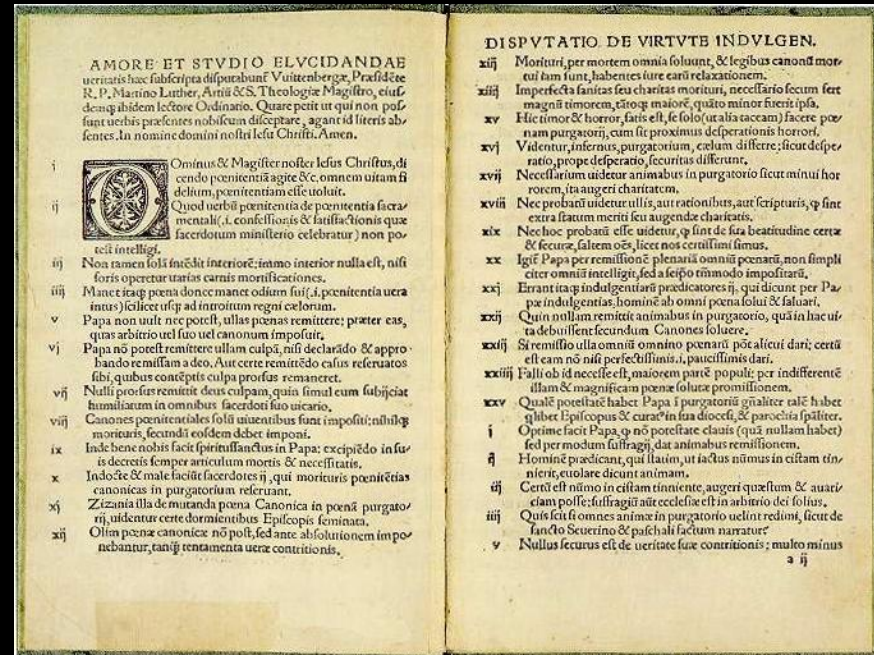 AMORE ET STVDIO ELVCIDANDAE
ueritatis hæc subscripta disputabunt̃ Vuittenbergæ, Præsidẽte
R. P. Martino Luther, Artiũ & S. Theologiæ Magistro, eius/
demq; ibidem lectore Ordinario. Quare petit ut qui non pos/
sunt uerbis præsentes nobiscum disceptare, agant id literis ab/
sentes. In nomine domini nostri Iesu Christi. Amen.
i Ominus & Magister noster Iesus Christus, di
cendo pœnitentiã agite &c. omnem uitam fi
delium, pœnitentiam esse uoluit.
ij Quod uerbũ pœnitentia de pœnitentia sacra/
mentali (.i. confessionis & satisfactionis quæ
sacerdotum ministerio celebratur) non po/
test intelligi.
iij Non tamen solã intẽdit interiorẽ: immo interior nulla est, nisi
foris operetur uarias carnis mortificationes.
iiij Manet itaq; pœna donec manet odium sui (.i. pœnitentia uera
intus) scilicet usq; ad introitum regni cælorum.
v Papa non uult nec potest, ullas pœnas remittere: præter eas,
quas arbitrio uel suo uel canonum imposuit.
vj Papa nõ potest remittere ullam culpã, nisi declarãdo & appro/
bando remissam a deo. Aut certe remittẽdo casus reseruatos
sibi, quibus contẽptis culpa prorsus remaneret.
vij Nulli prorsus remittit deus culpam, quin simul eum subijciat
humiliatum in omnibus sacerdoti suo uicario.
viij Canones pœnitentiales solũ uiuentibus sunt impositi: nihilq;
morituris, secundũ eosdem debet imponi.
ix Inde bene nobis facit spiritussanctus in Papa: excipiẽdo in su/
is decretis semper articulum mortis & necessitatis.
x Indocte & male faciũt sacerdotes ij, qui morituris pœnitẽtias
canonicas in purgatorium reseruant.
xj Zizania illa de mutanda pœna Canonica in pœnã purgato/
rij, uidentur certe dormientibus Episcopis seminata.
xij Olim pœnæ canonicæ nõ post, sed ante absolutionem impo/
nebantur, tanq̃ tentamenta ueræ contritionis.
DISPVTATIO DE VIRTVTE INDVLGEN.
xiij Morituri, per mortem omnia soluunt, & legibus canonũ mor/
tui iam sunt, habentes iure earũ relaxationem.
xiiij Imperfecta sanitas seu charitas morituri, necessario secum fert
magnũ timorem, tãtoq; maiorẽ, quãto minor fuerit ipsa.
xv Hic timor & horror, satis est, se solo (ut alia taceam) facere pœ/
nam purgatorij, cum sit proximus desperationis horrori.
xvj Videntur, infernus, purgatorium, cælum differre: sicut despe/
ratio, prope desperatio, securitas differunt.
xvij Necessarium uidetur animabus in purgatorio sicut minui hor
rorem, ita augeri charitatem.
xviij Nec probatũ uidetur ullis, aut rationibus, aut scripturis, q̃ sint
extra statum meriti seu augendæ charitatis.
xix Nec hoc probatũ esse uidetur, q̃ sint de sua beatitudine certæ
& securæ, saltem oẽs, licet nos certissimi simus.
xx Igit̃ Papa per remissionẽ plenariã omniũ pœnarũ, non simpli
citer omniũ intelligit, sed a seipso tm̃modo impositarũ.
xxj Errant itaq; indulgentiarũ prædicatores ij, qui dicunt per Pa/
pæ indulgentias, hominẽ ab omni pœna solui & saluari.
xxij Quin nullam remittit animabus in purgatorio, quã in hac ui/
ta debuissent secundum Canones soluere.
xxiij Si remissio ulla omniũ omnino pœnarũ põt alicui dari: certũ
est eam nõ nisi perfectissimis .i. paucissimis dari.
xxiiij Falli ob id necesse est, maiorem partẽ populi: per indifferentẽ
illam & magnificam pœnæ solutæ promissionem.
xxv Qualẽ potestatẽ habet Papa ĩ purgatoriũ gñaliter talẽ habet
q̃libet Episcopus & curat⁹ in sua diocesi, & parochia sp̃aliter.
i Optime facit Papa, q̃ nõ potestate clauis (quã nullam habet)
sed per modum suffragij, dat animabus remissionem.
ij Hominẽ prædicant, qui statim, ut iactus nũmus in cistam tin/
nierit, euolare dicunt animam.
iij Certũ est nũmo in cistam tinniente, augeri quæstum & auari/
ciam posse; suffragiũ aũt ecclesiæ est in arbitrio dei solius.
iiij Quis scit si omnes animæ in purgatorio uelint redimi, sicut de
sancto Seuerino & paschali factum narratur?
v Nullus securus est de ueritate suæ contritionis; multo minus
a ij